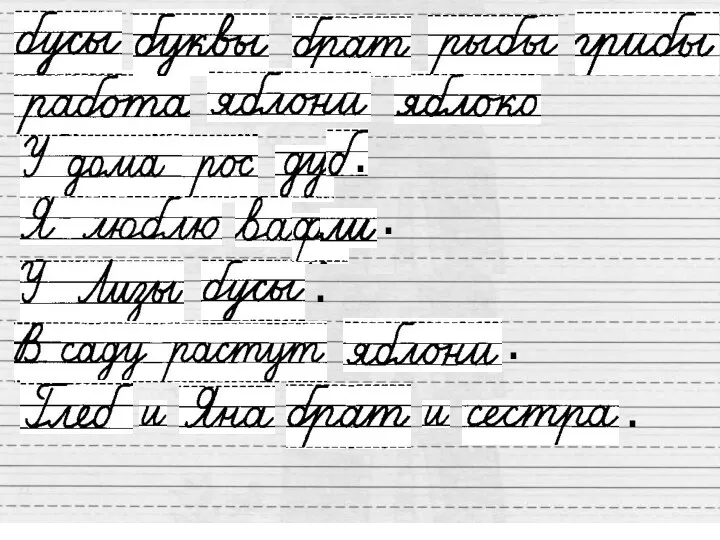 бусы буквы брат рыбы грибы
работа яблони яблоко
У дома рос дуб.
Я люблю вафли.
У Лизы бусы.
В саду растут яблони.
Глеб и Яна брат и сестра.